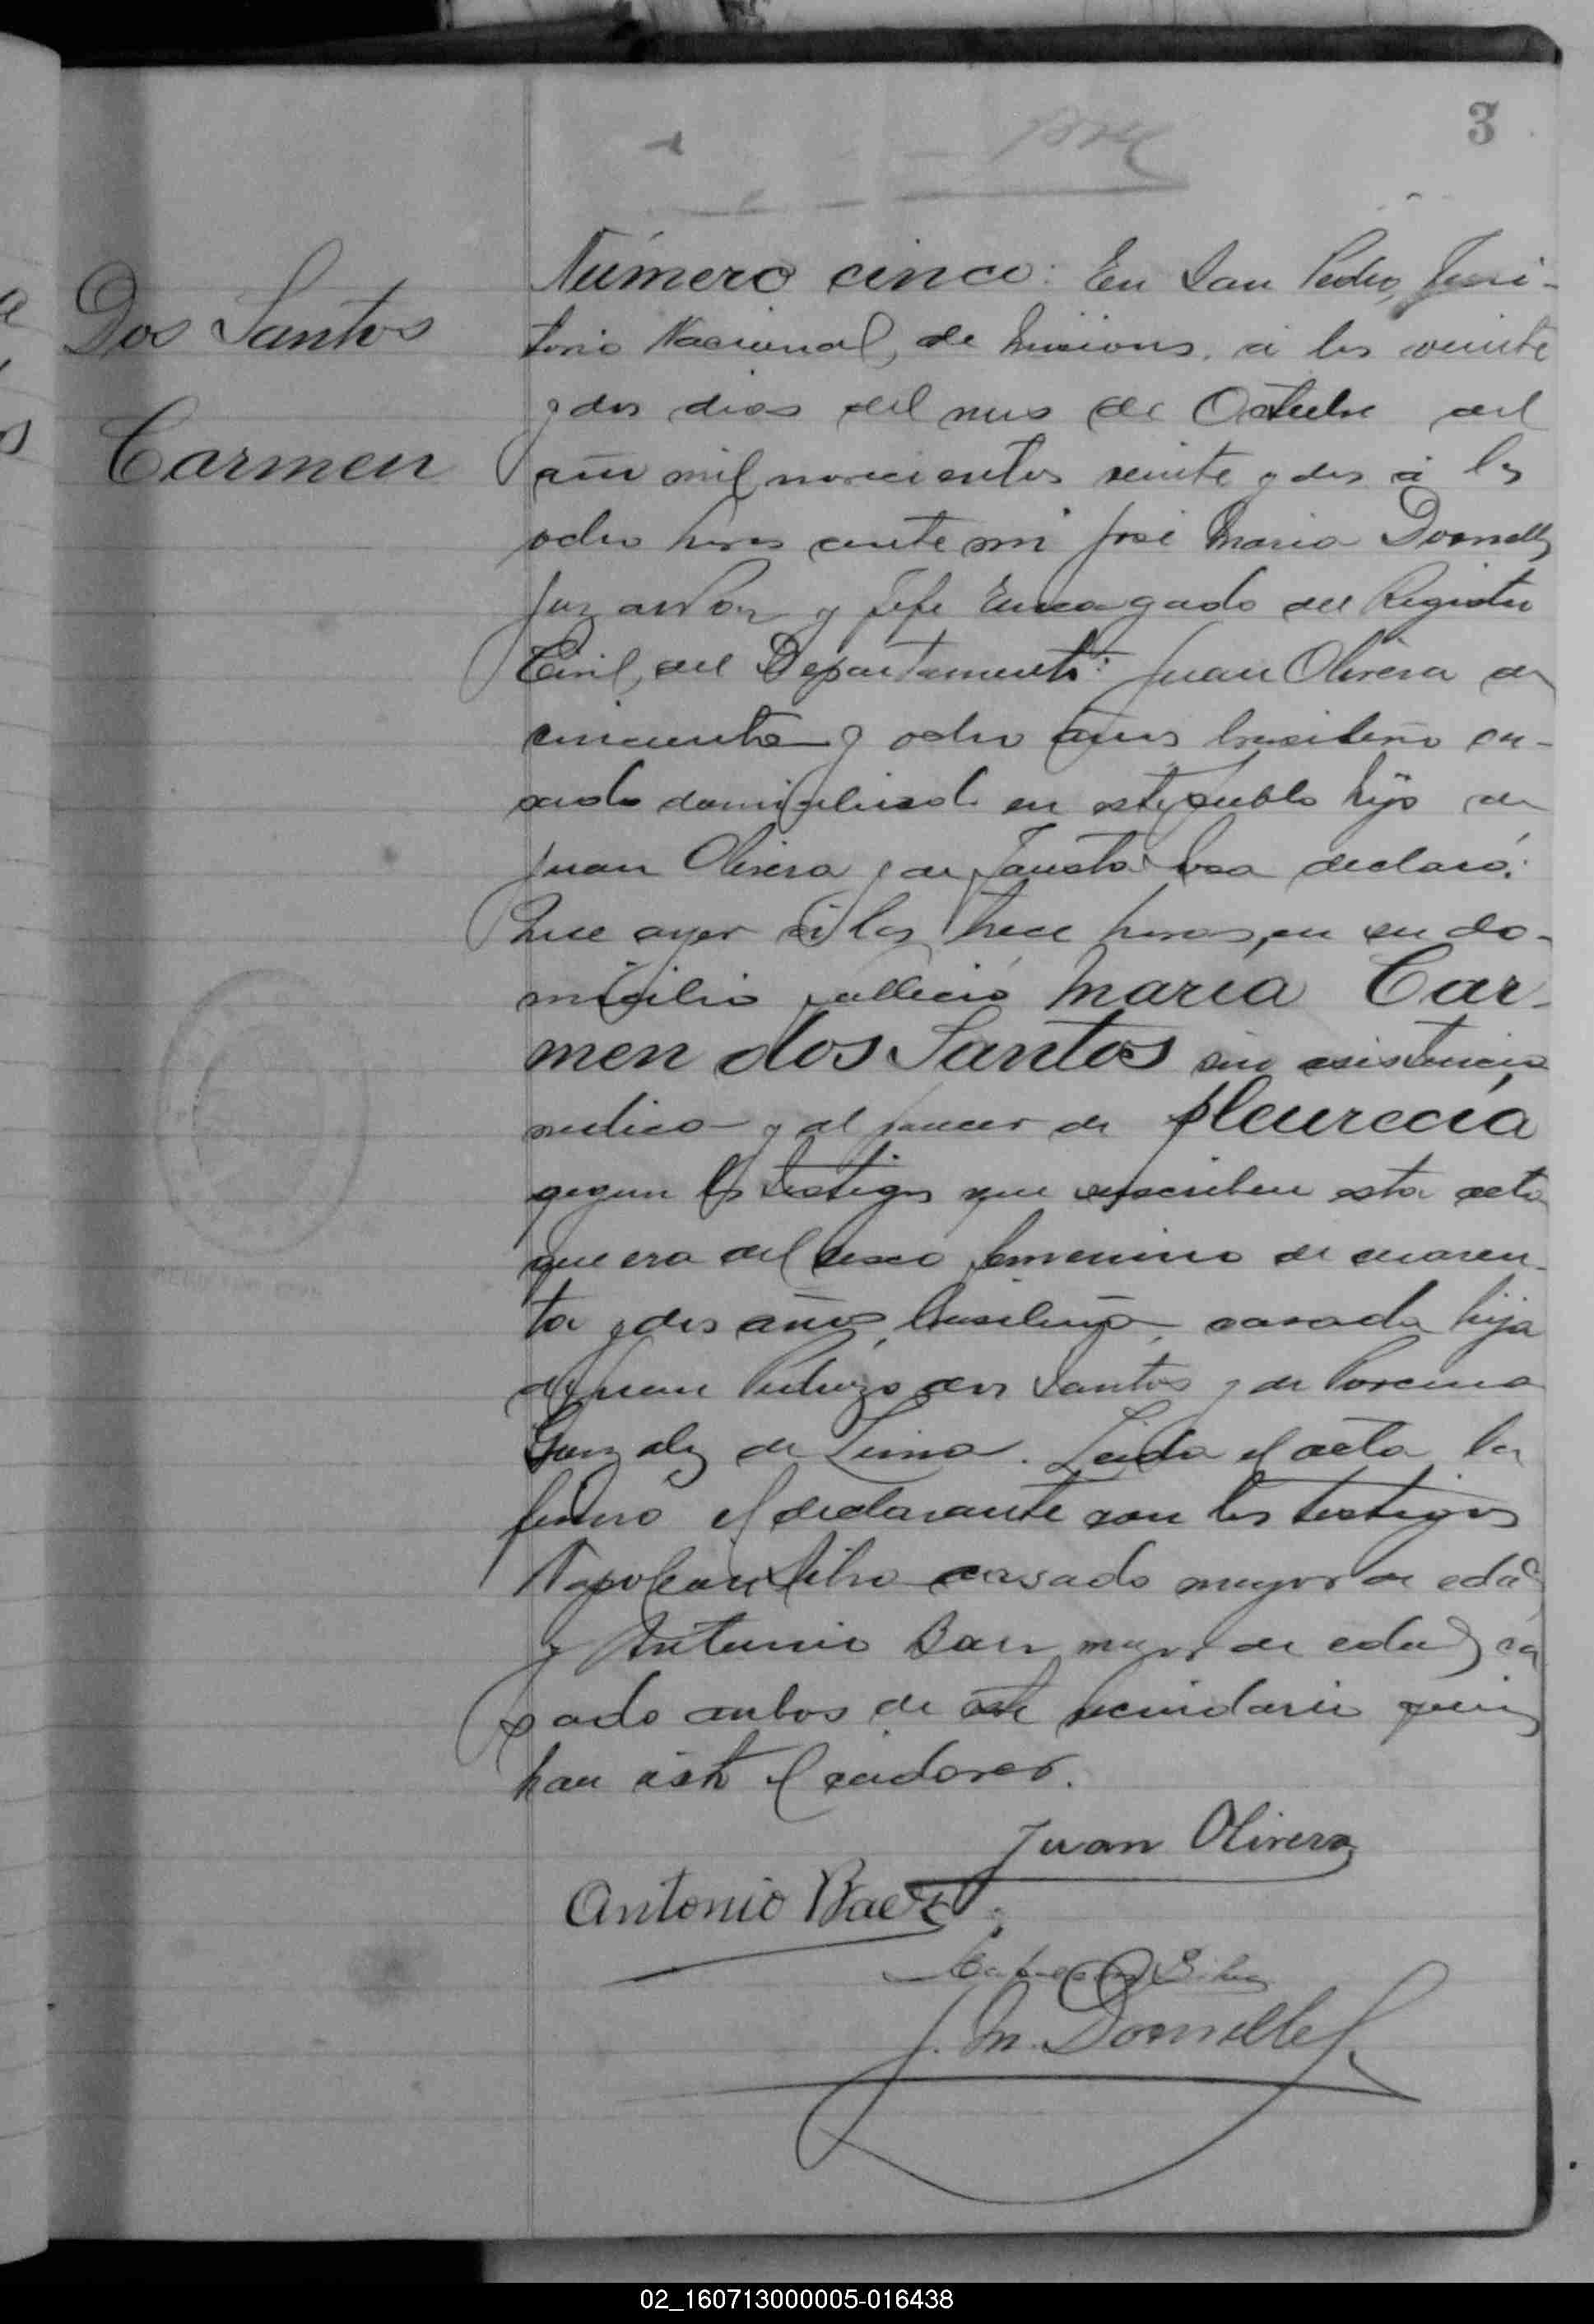 3
Dos Santos
Carmen
Número cinco: En San Pedro, Terri-
torio Nacional, de Misiones, a los veinte
y dos dias del mes de Octubre del
año mil novecientos veinte y dos á las
ocho horas ante mi José Maria Donnelly
Juez de Paz y Jefe Encargado del Registro
Civil, del Departamento: Juan Olivera de
cincuenta y ocho años brasileño ca-
sado domiciliado en este pueblo hijo de
Juan Olivera y de Fausta declaró:
Que ayer á las trece horas, en su do-
micilio falleció Maria Car-
men dos Santos sin asistencia
medica y al parecer de pleurecía
segun los testigos que suscriben esta acta
que era del sexo femenino de cuaren-
ta y dos años, brasileña, casada hija
de Juan dos Santos y de
Gonzalez de Lima. Leida el acta la
firmó el declarante con los testigos
Napoleon Silva casado mayor de edad
y Antonio Baez mayor de edad ca
sado ambos de este vecindario quienes
han visto el cadaver.
Juan Olivera
Antonio Baez
Silva
J. M. Donnelly
02_160713000005-016438